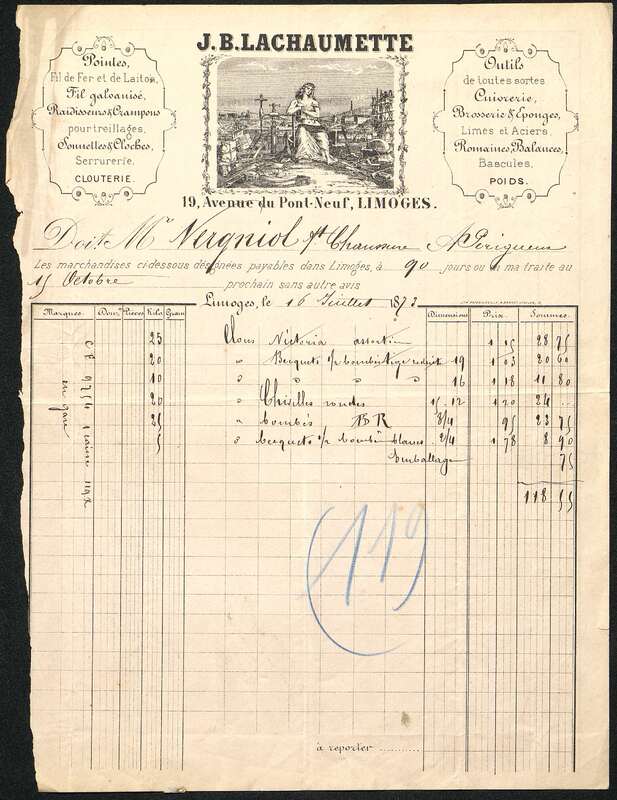 J. B. LACHAUMETTE
Pointes,
Fil de Fer et de Laiton,
Fil galvanisé,
Raidisseurs & Crampons
pour treillages,
Sonnettes & Cloches,
Serrurerie.
CLOUTERIE.
Outils
de toutes sortes
Cuivrerie,
Brosserie & Eponges,
Limes et Aciers
Romaines, Balances,
Bascules,
POIDS.
19, Avenue du Pont-Neuf, LIMOGES.
Doit Mr Vergniol Chaussure à Périgueux
Les marchandises ci-dessous désignées payables dans Limoges, à 90 jours ou à ma traite au
15 Octobre prochain sans autre avis
Limoges, le 16 Juillet 1873
Marques. Douz. Pièces Kilo Grain Dimensions Prix. Sommes.
25 Clous Victoria assortis 1 15 28 75
20 " Becquets s/p 19 1 03 20 60
10 " " " 16 1 18 11 80
20 " Chevilles rondes 15-12 1 20 24 "
25 " bombés BR 3/4 95 23 75
5 " becquets s/p bombés blancs 2/4 1 78 8 90
Emballage 75
118 55
C. F. 9754 1 caisse
en gare
119
à reporter